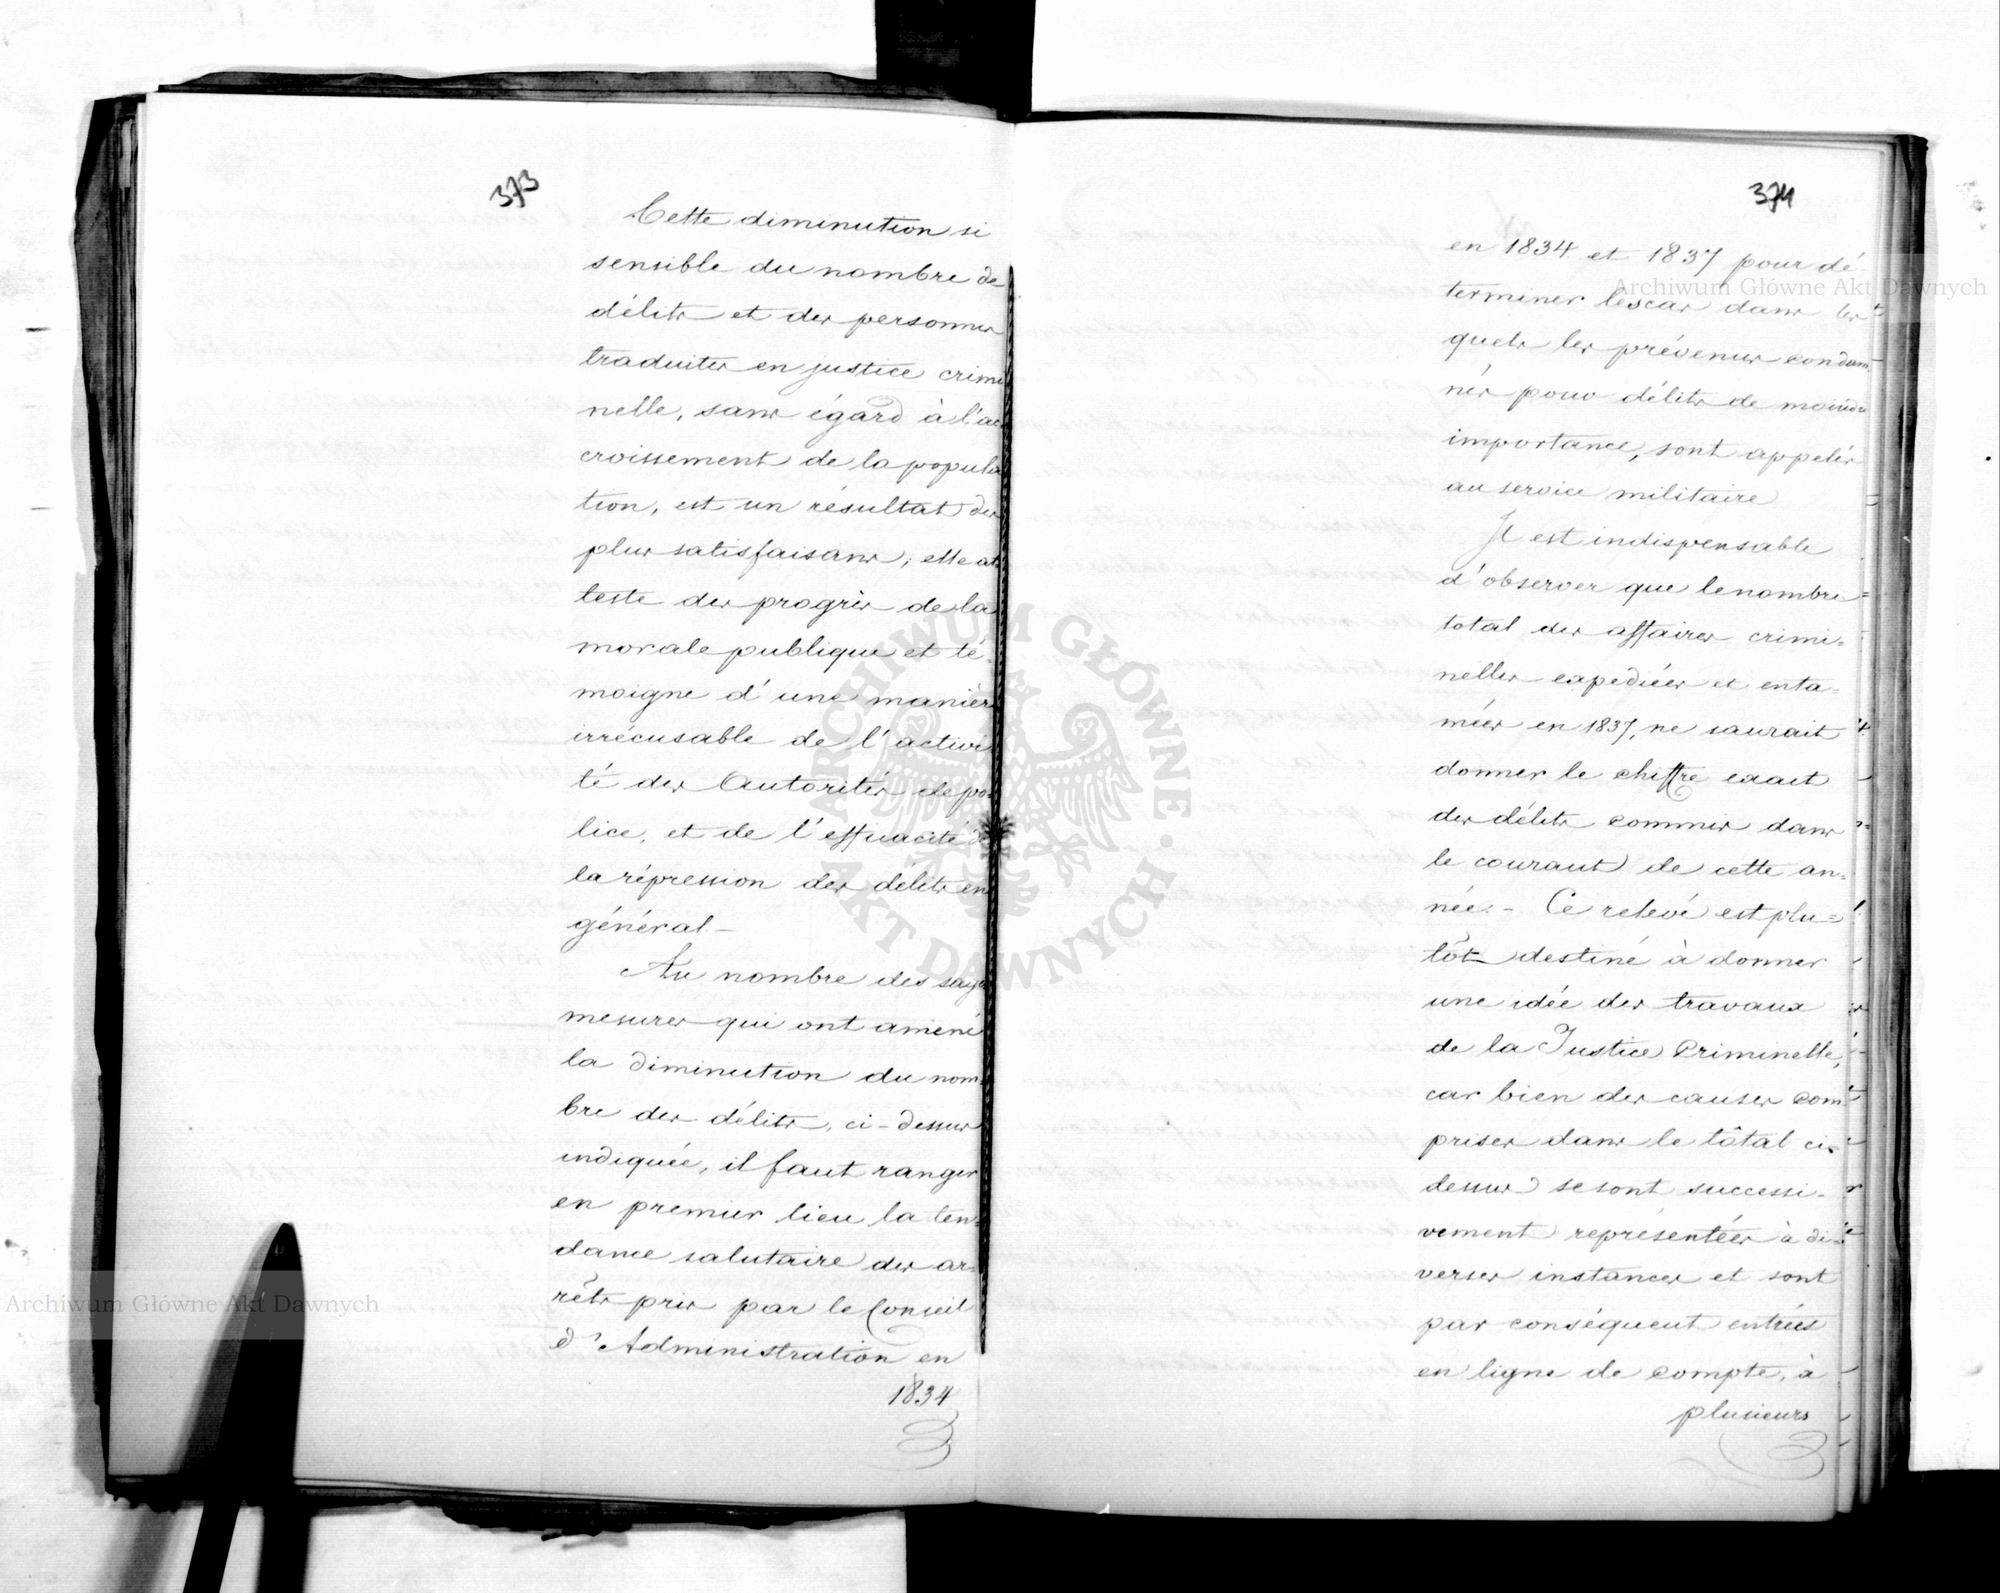 373
Cette diminution si
sensible du nombre de
délits et des personnes
traduites en justice crimi
nelle, sans égard à l'ac
croissement de la popula
tion, est un résultat des
plus satisfaisans; elle at
teste des progrès de la
morale publique et té-
moigne d'une manière
irrécusable de l'activi
té des Autorités de po-
lice, et de l'efficacité de
la répression des délits en
général -
Au nombre des sages
mesures qui ont amené
la diminution du nom-
bre des délits, ci-dessus
indiquée, il faut ranger
en premier lieu la ten-
dance salutaire des ar-
rêts pris par le Conseil
d'Administration en
1834
374
en 1834 et 1837 pour dé
terminer les cas dans les
quels les prévenus condam
nés pour délits de moindre
importance, sont appelés
au service militaire
Il est indispensable
d'observer que le nombre
total des affaires crimi=
nelles expediées et enta=
mées en 1837, ne saurait
donner le chiffre exact
des délits commis dans
le courant de cette an=
née. - Ce relevé est plu=
tôt destiné à donner
une idée des travaux
de la Justice Criminelle,
car bien des causes com
prises dans le tôtal ci-
dessus se sont successi-
vement représentées à di-
verses instances et sont
par conséquent entrées
en ligne de compte, à
plusieurs
Archiwum Główne Akt Dawnych
Archiwum Główne Akt Dawnych
ARCHIWUM GŁÓWNE · AKT DAWNYCH ·